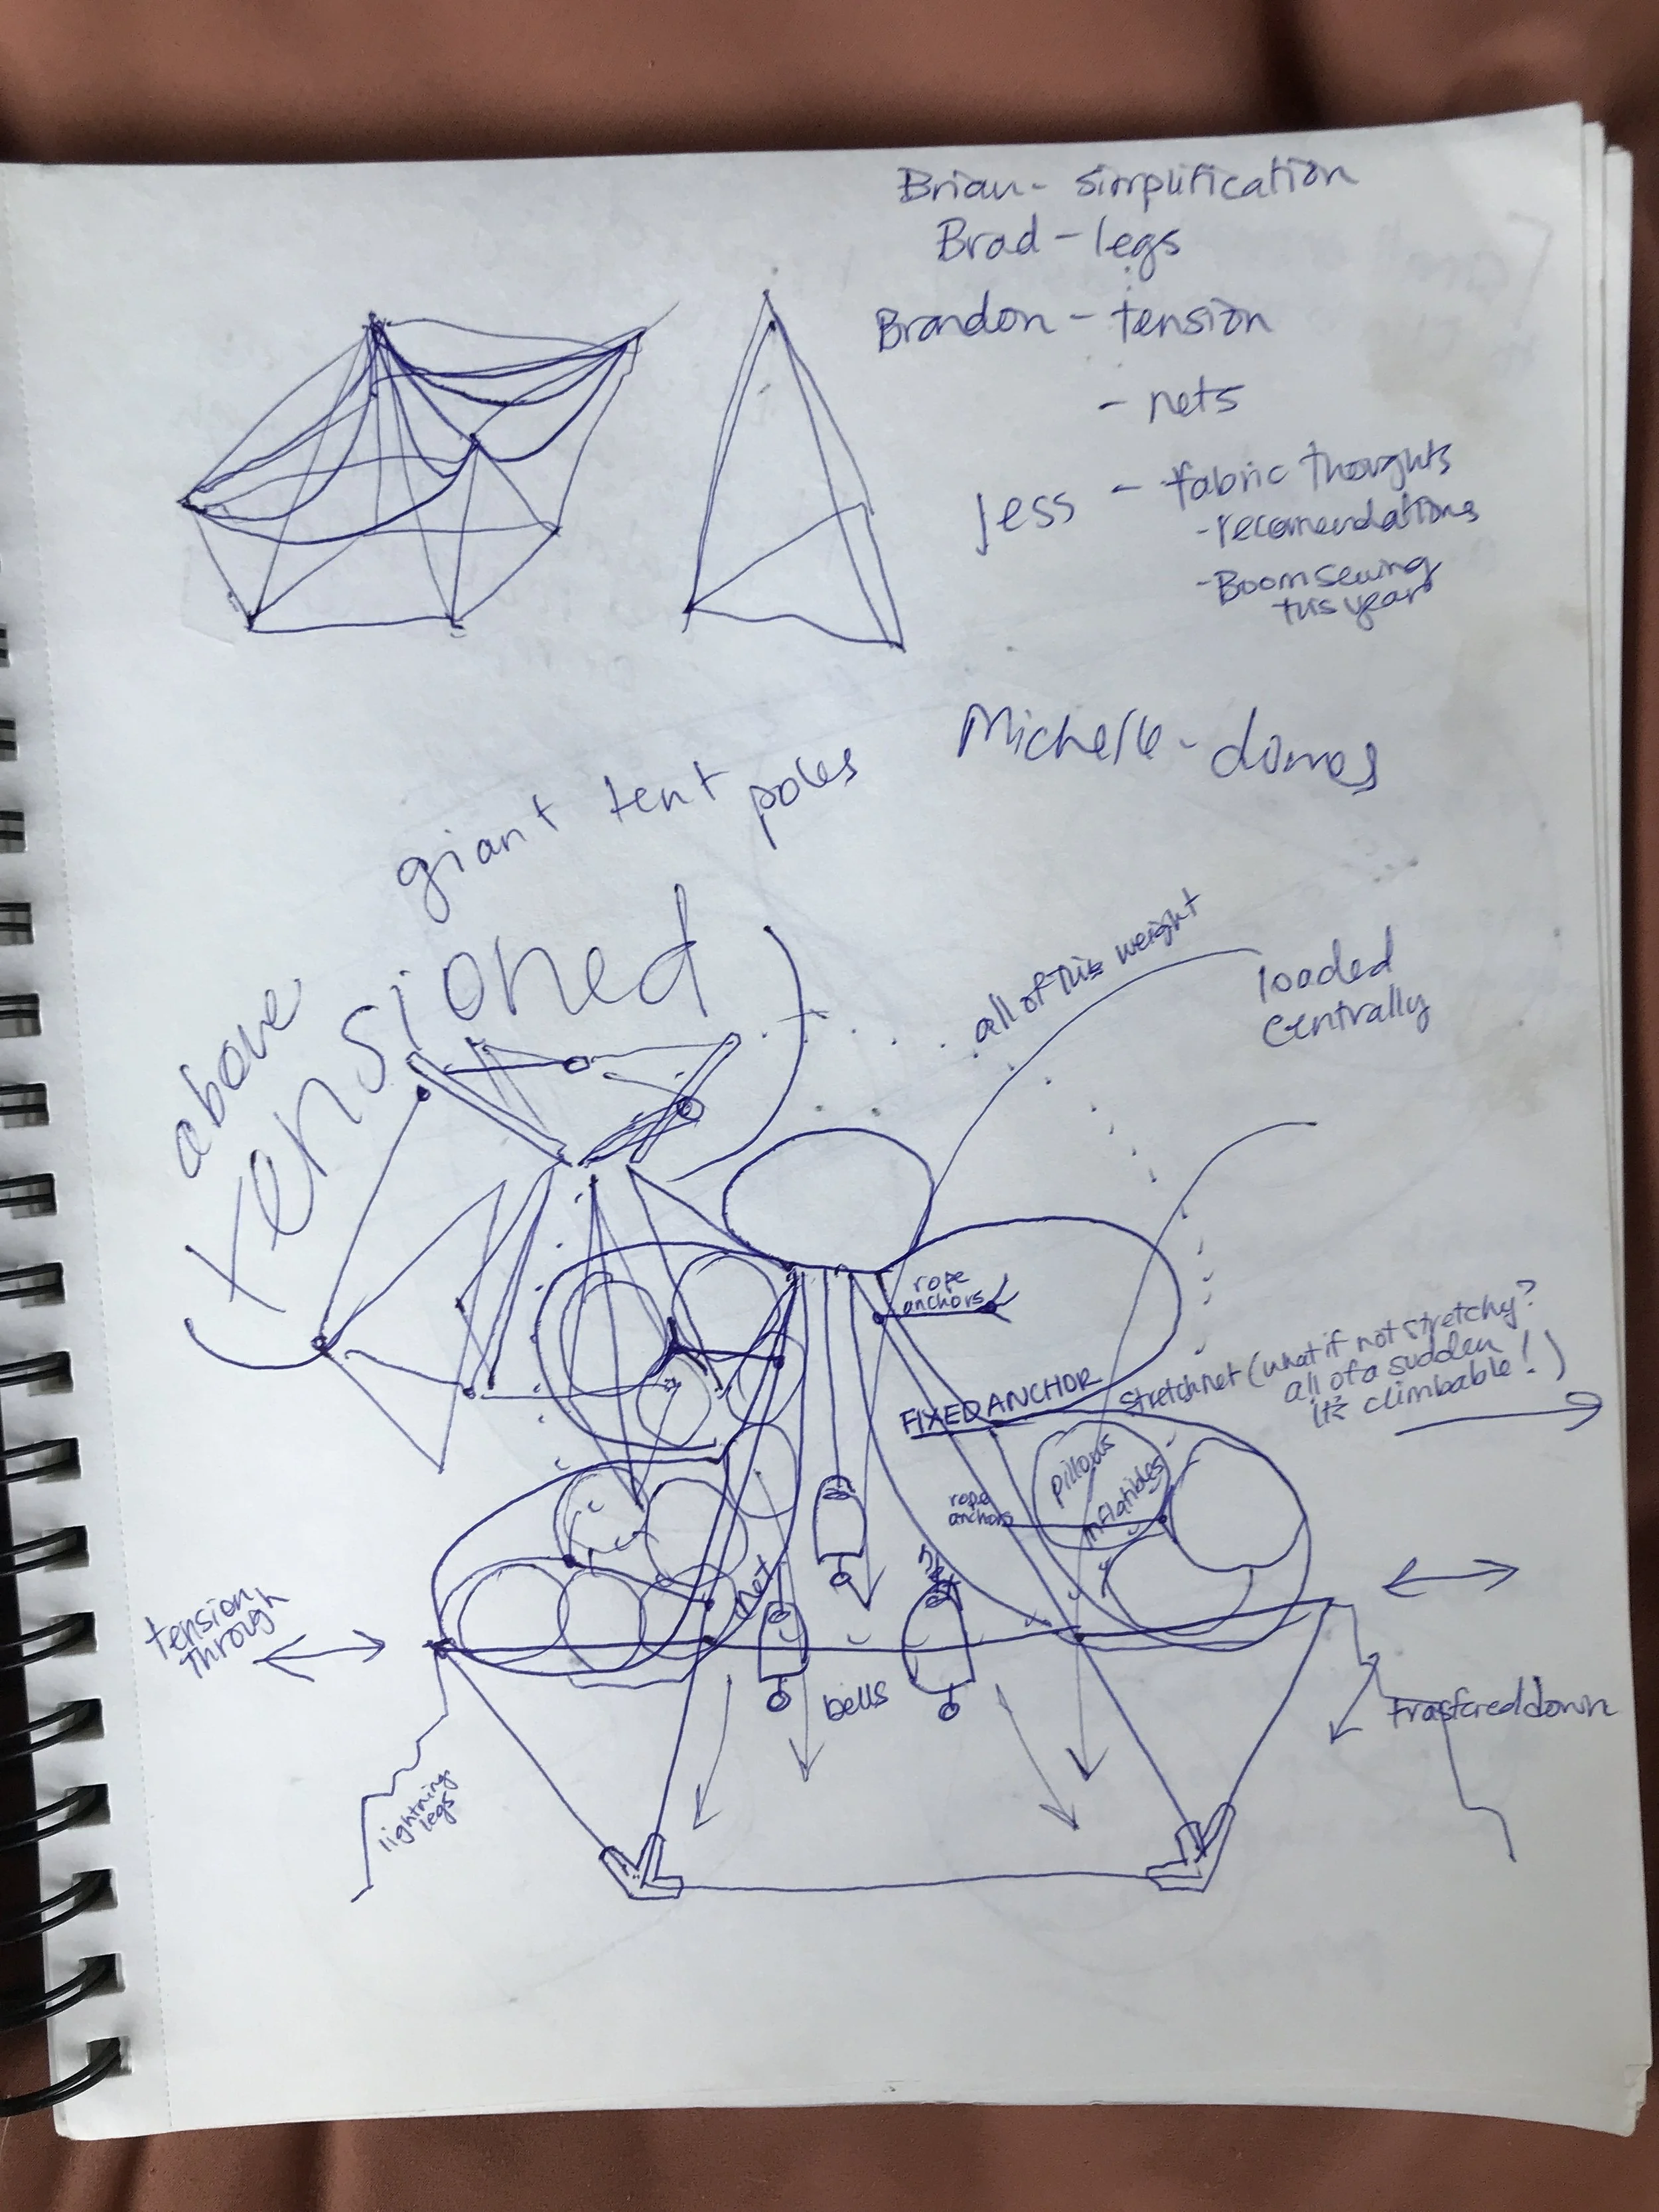 Brian - simplification
Brad - legs
Brandon - tension
- nets
Jess - fabric thoughts
- recomendations
- Boom sewing
this year
Michelle - domes
giant tent poles
above
tensioned
all of this weight
loaded
centrally
rope
anchors
FIXED ANCHOR
stretch net (what if not stretchy?
all of a sudden
it's climbable!)
pillows
inflatibles
rope
anchors
net
tension
through
bells
trasfered down
lightning
legs